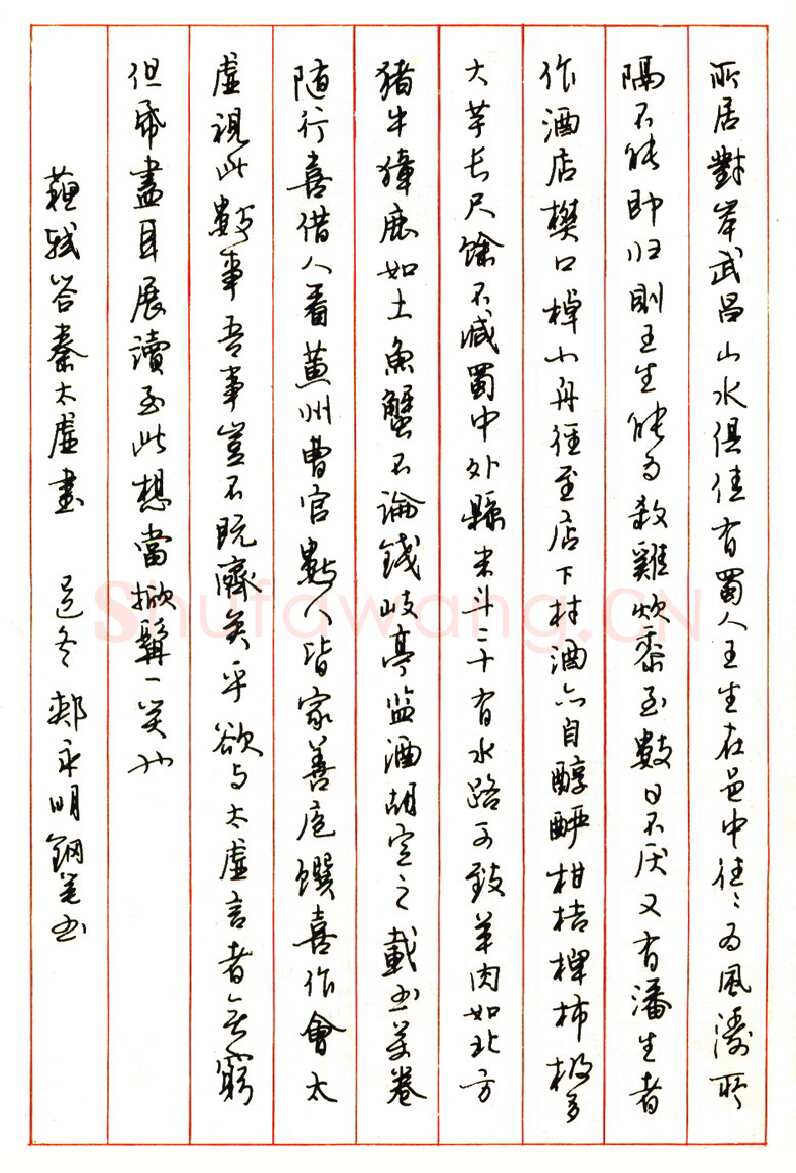 所居對岸武昌山水俱佳有蜀人王生在邑中往〻为風濤所
隔不能即归則王生能为殺雞炊黍至數日不厌又有潘生者
作酒店樊口棹小舟徑至店下村酒亦自醇酽柑桔椑柿极多
大芋长尺餘不减蜀中外縣米斗二十有水路可致羊肉如北方
猪牛獐鹿如土魚蟹不論錢岐亭监酒胡定之載书万卷
随行喜借人看黄州曹官數人皆家善庖饌喜作會太
虚視此數事吾事豈不既濟矣乎欲与太虚言者无窮
但纸盡耳展讀至此想當掀髯一笑也
蘇轼答秦太虚書 冬 郏永明鋼笔书
Shufawang.CN